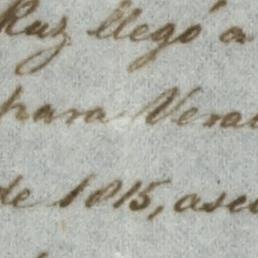 Ruz llegó a
para Vera
de 1815, asc